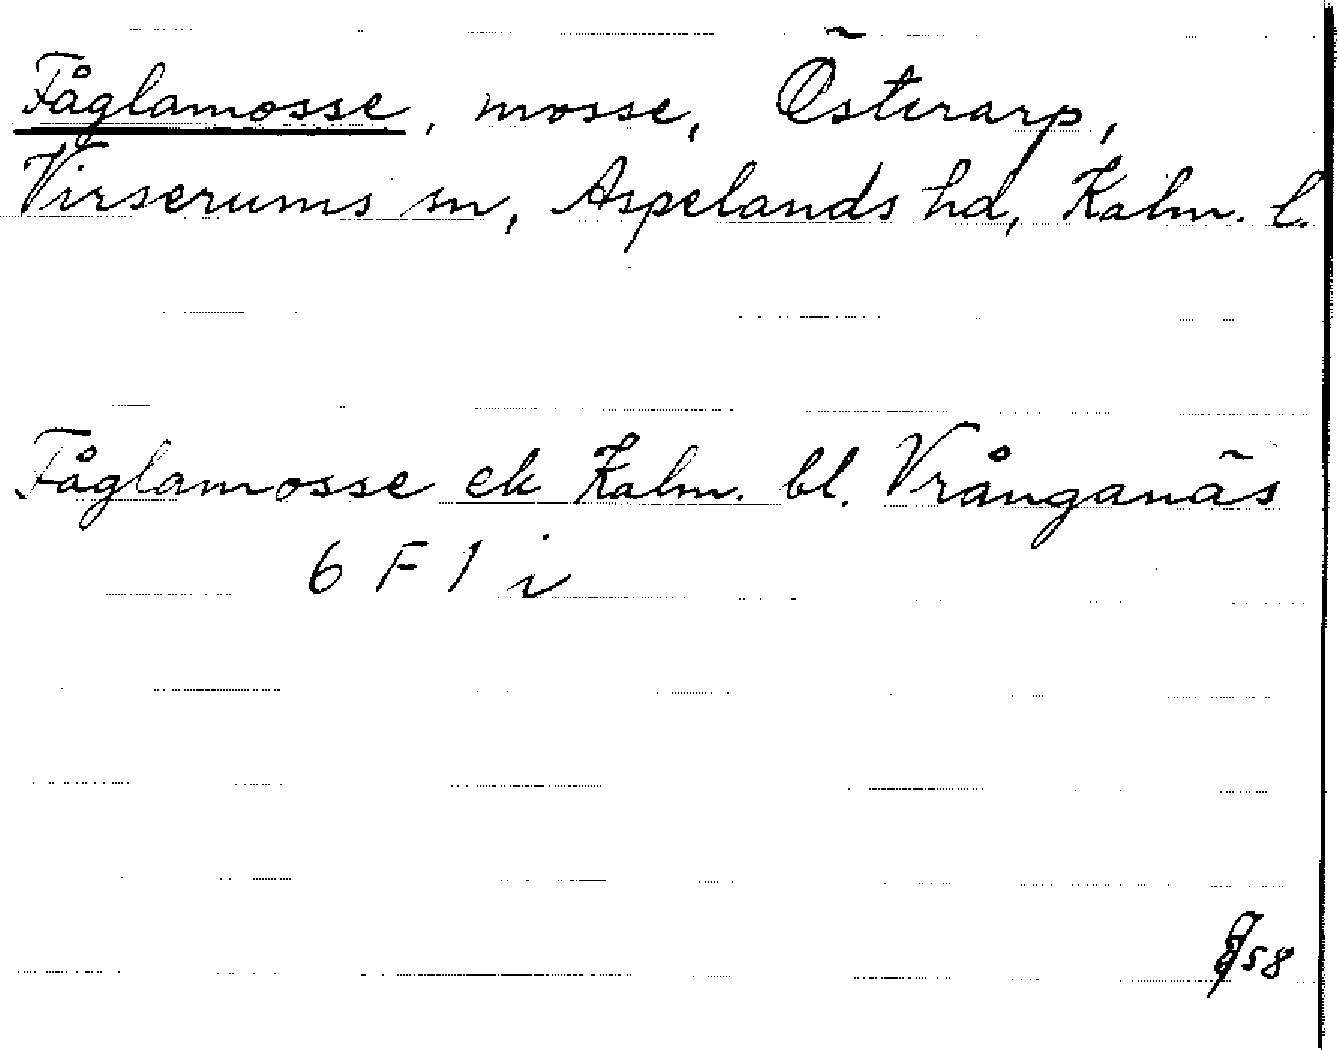 Fåglamosse, mosse, Österarp,
Virserums sn, Aspelands hd, Kalm. l.
Fåglamosse ek Kalm. bl. Vrånganäs
6 F 1 i
58